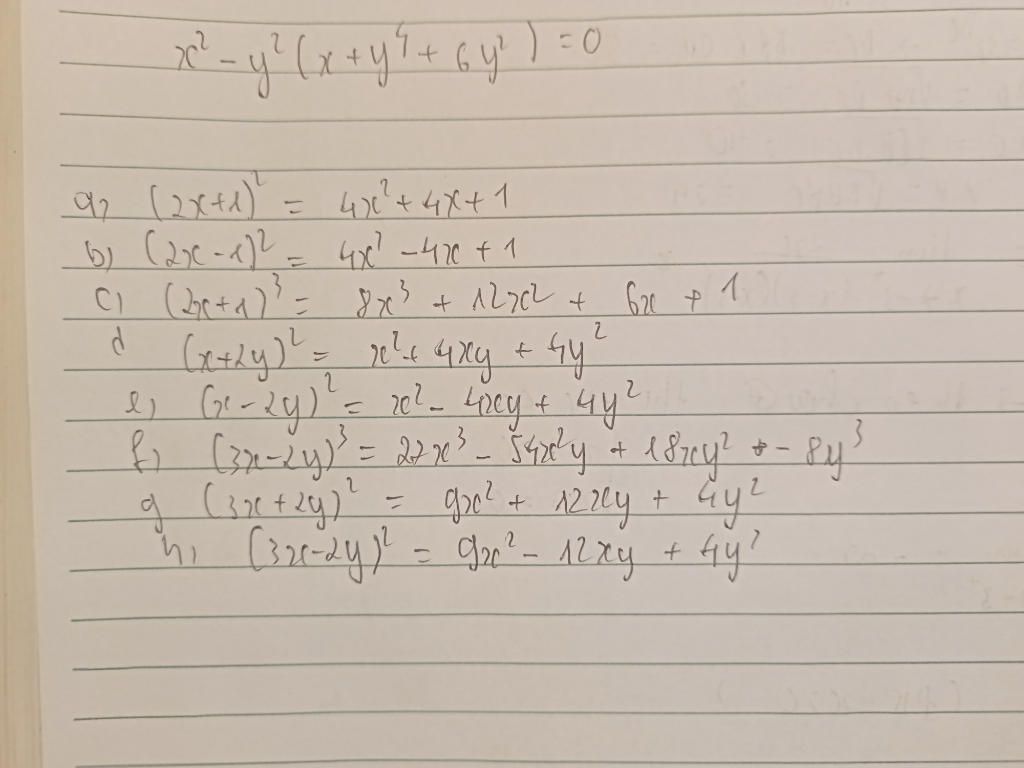 x² - y² (x + y⁴ + 6y²) = 0
a, (2x+1)² = 4x² + 4x + 1
b) (2x - 1)² = 4x² - 4x + 1
c) (2x+1)³ = 8x³ + 12x² + 6x + 1
d (x+2y)² = x² + 4xy + 4y²
e) (x - 2y)² = x² - 4xy + 4y²
f) (3x-2y)³ = 27x³ - 54x²y + 18xy² + - 8y³
g (3x + 2y)² = 9x² + 12xy + 4y²
h, (3x-2y)² = 9x² - 12xy + 4y²